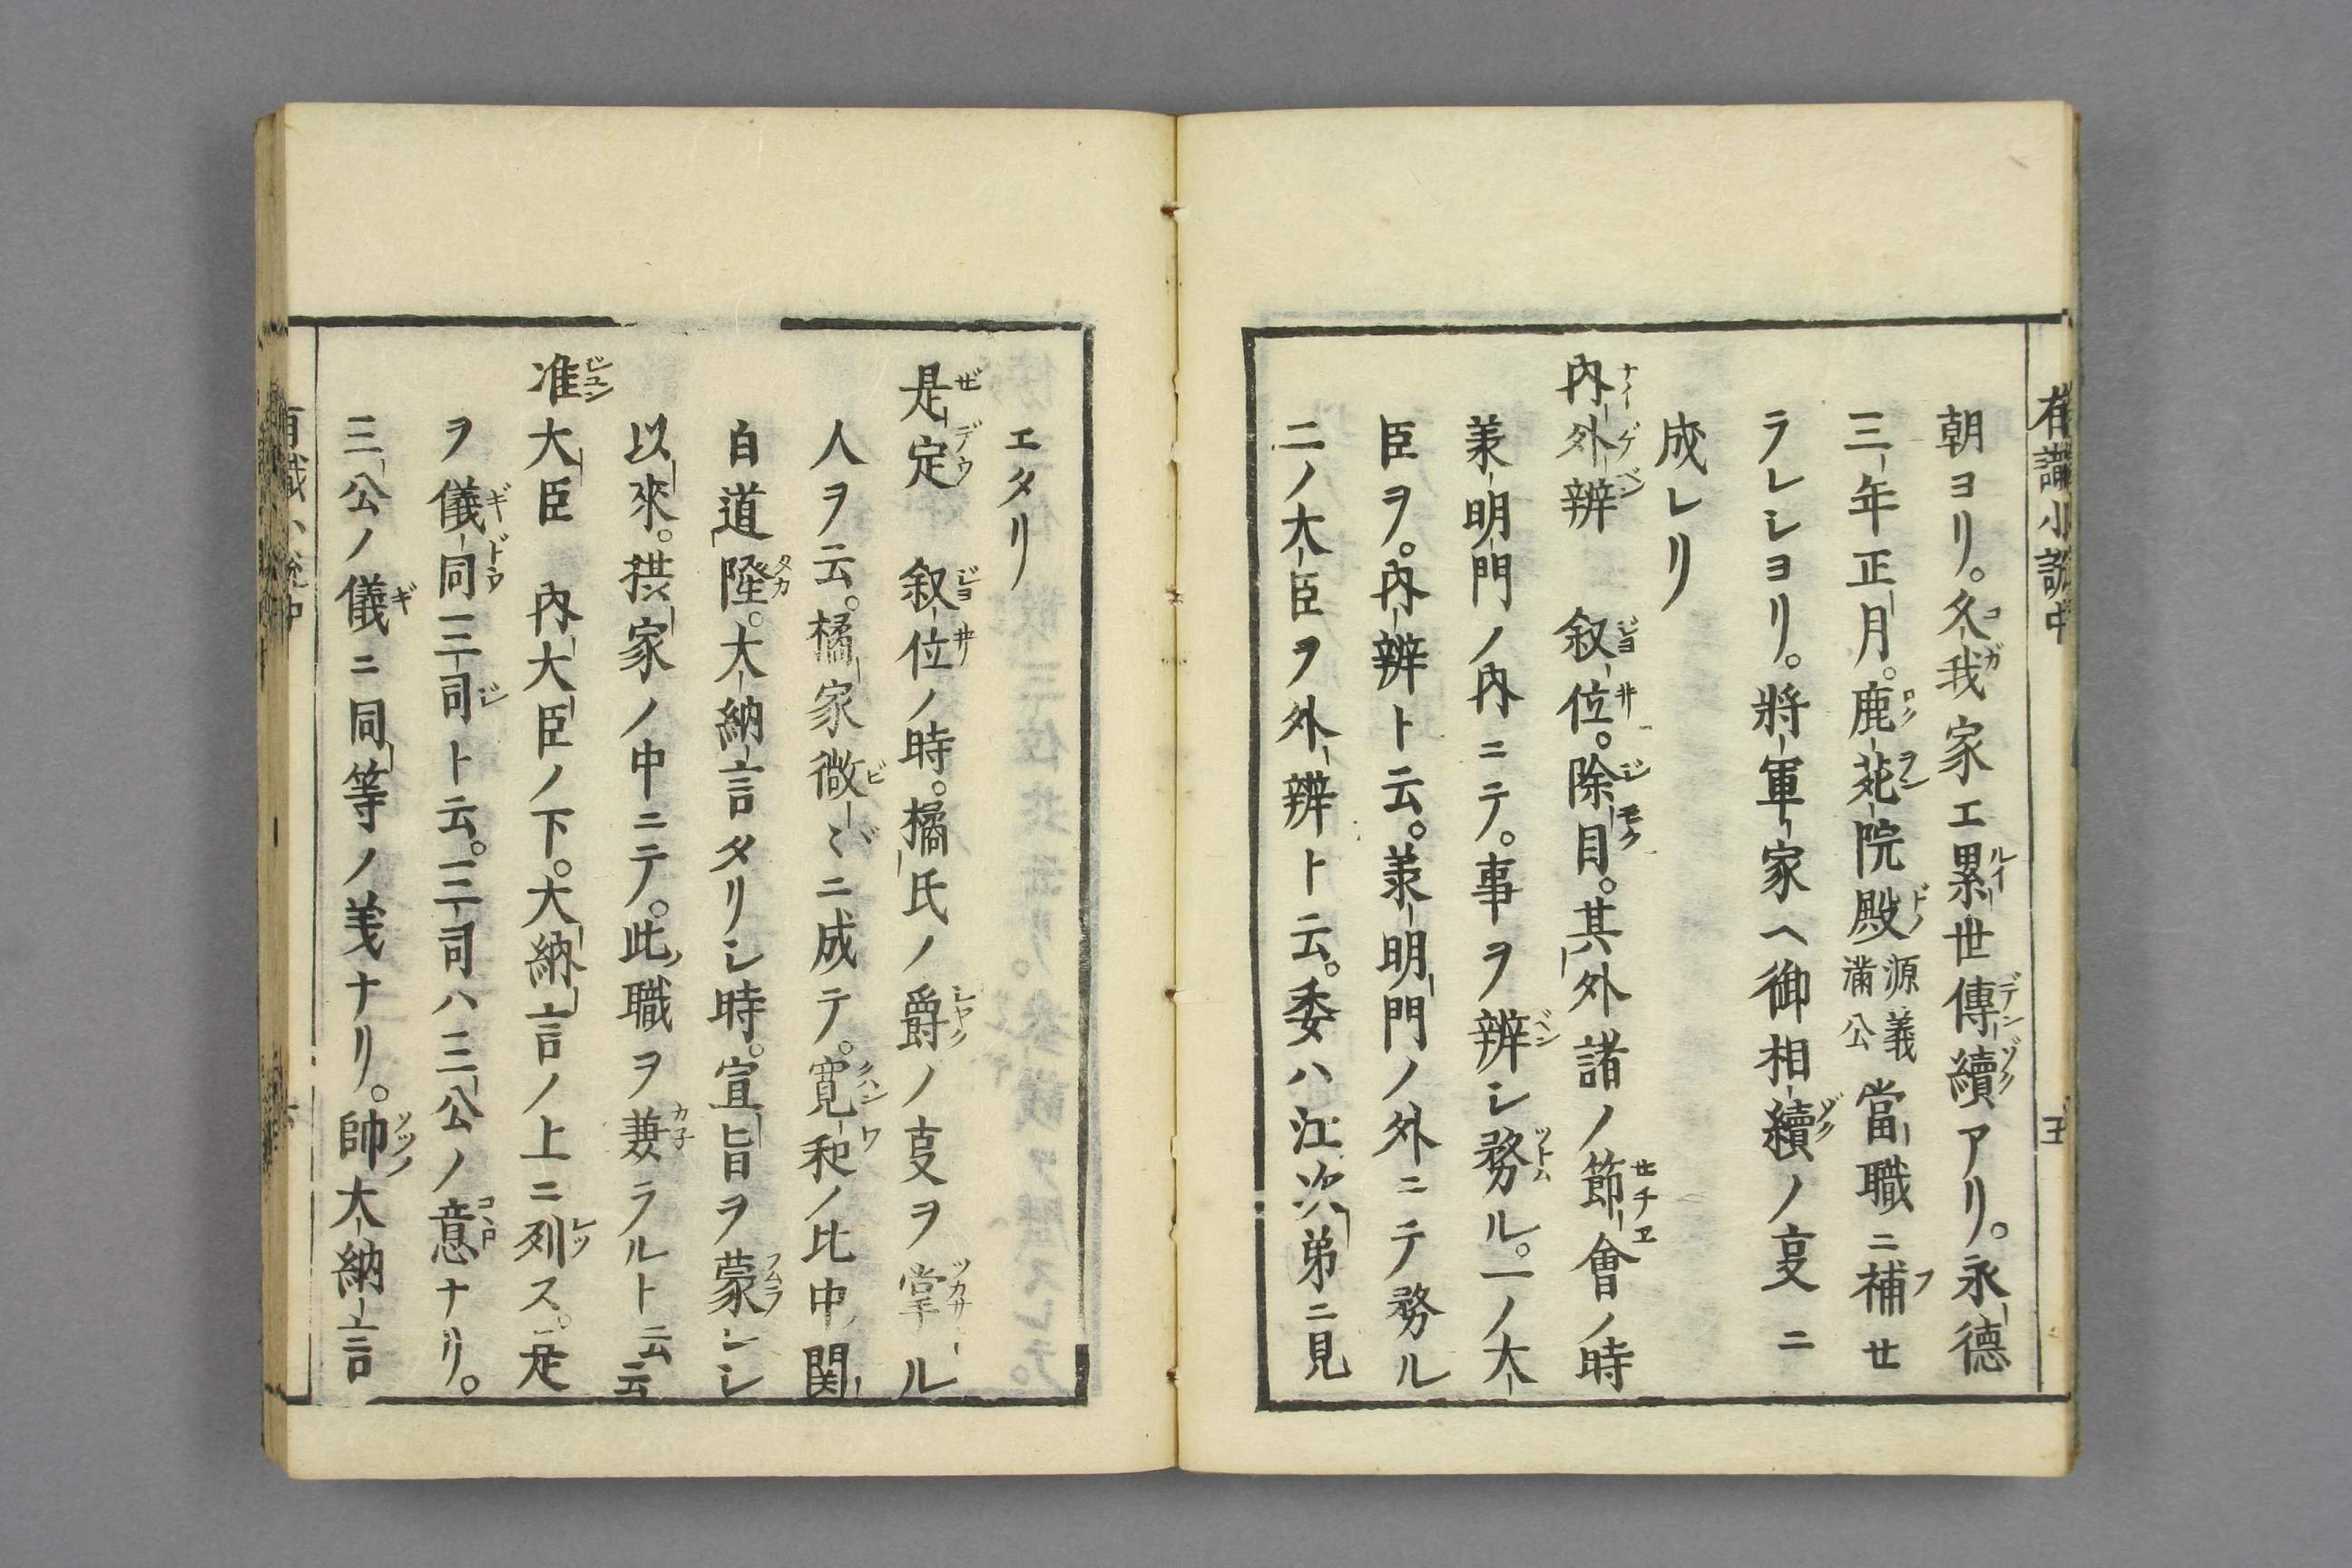 朝ヨリ。久我家エ累世傳續アリ。永德
三年正月。鹿苑院殿源義滿公當職ニ補せ
ラレシヨリ。將軍家ヘ御相續ノ㕝ニ
成レリ
內外辨 叙位。除目。其外諸ノ節會ノ時
兼明門ノ內ニテ。事ヲ辨シ務ル。一ノ大
臣ヲ。內辨ト云。兼明門ノ外ニテ務ル
二ノ大臣ヲ外辨ト云。委ハ江次弟ニ見
エタリ
是定 叙位ノ時。橘氏ノ爵ノ㕝ヲ掌ル
人ヲ云。橘家微〻ニ成テ。寛和ノ比中関
白道隆。大納言タリシ時。宣旨ヲ蒙レシ
以來。摂家ノ中ニテ。此職ヲ兼ラルト云云
准大臣 內大臣ノ下。大納言ノ上ニ列ス。是
ヲ儀同三司ト云。三司ハ三公ノ意ナリ。
三公ノ儀ニ同等ノ義ナリ。帥大納言